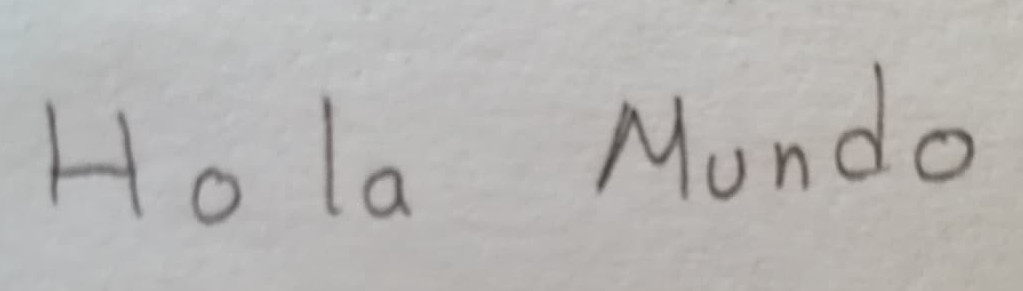 Hola Mundo